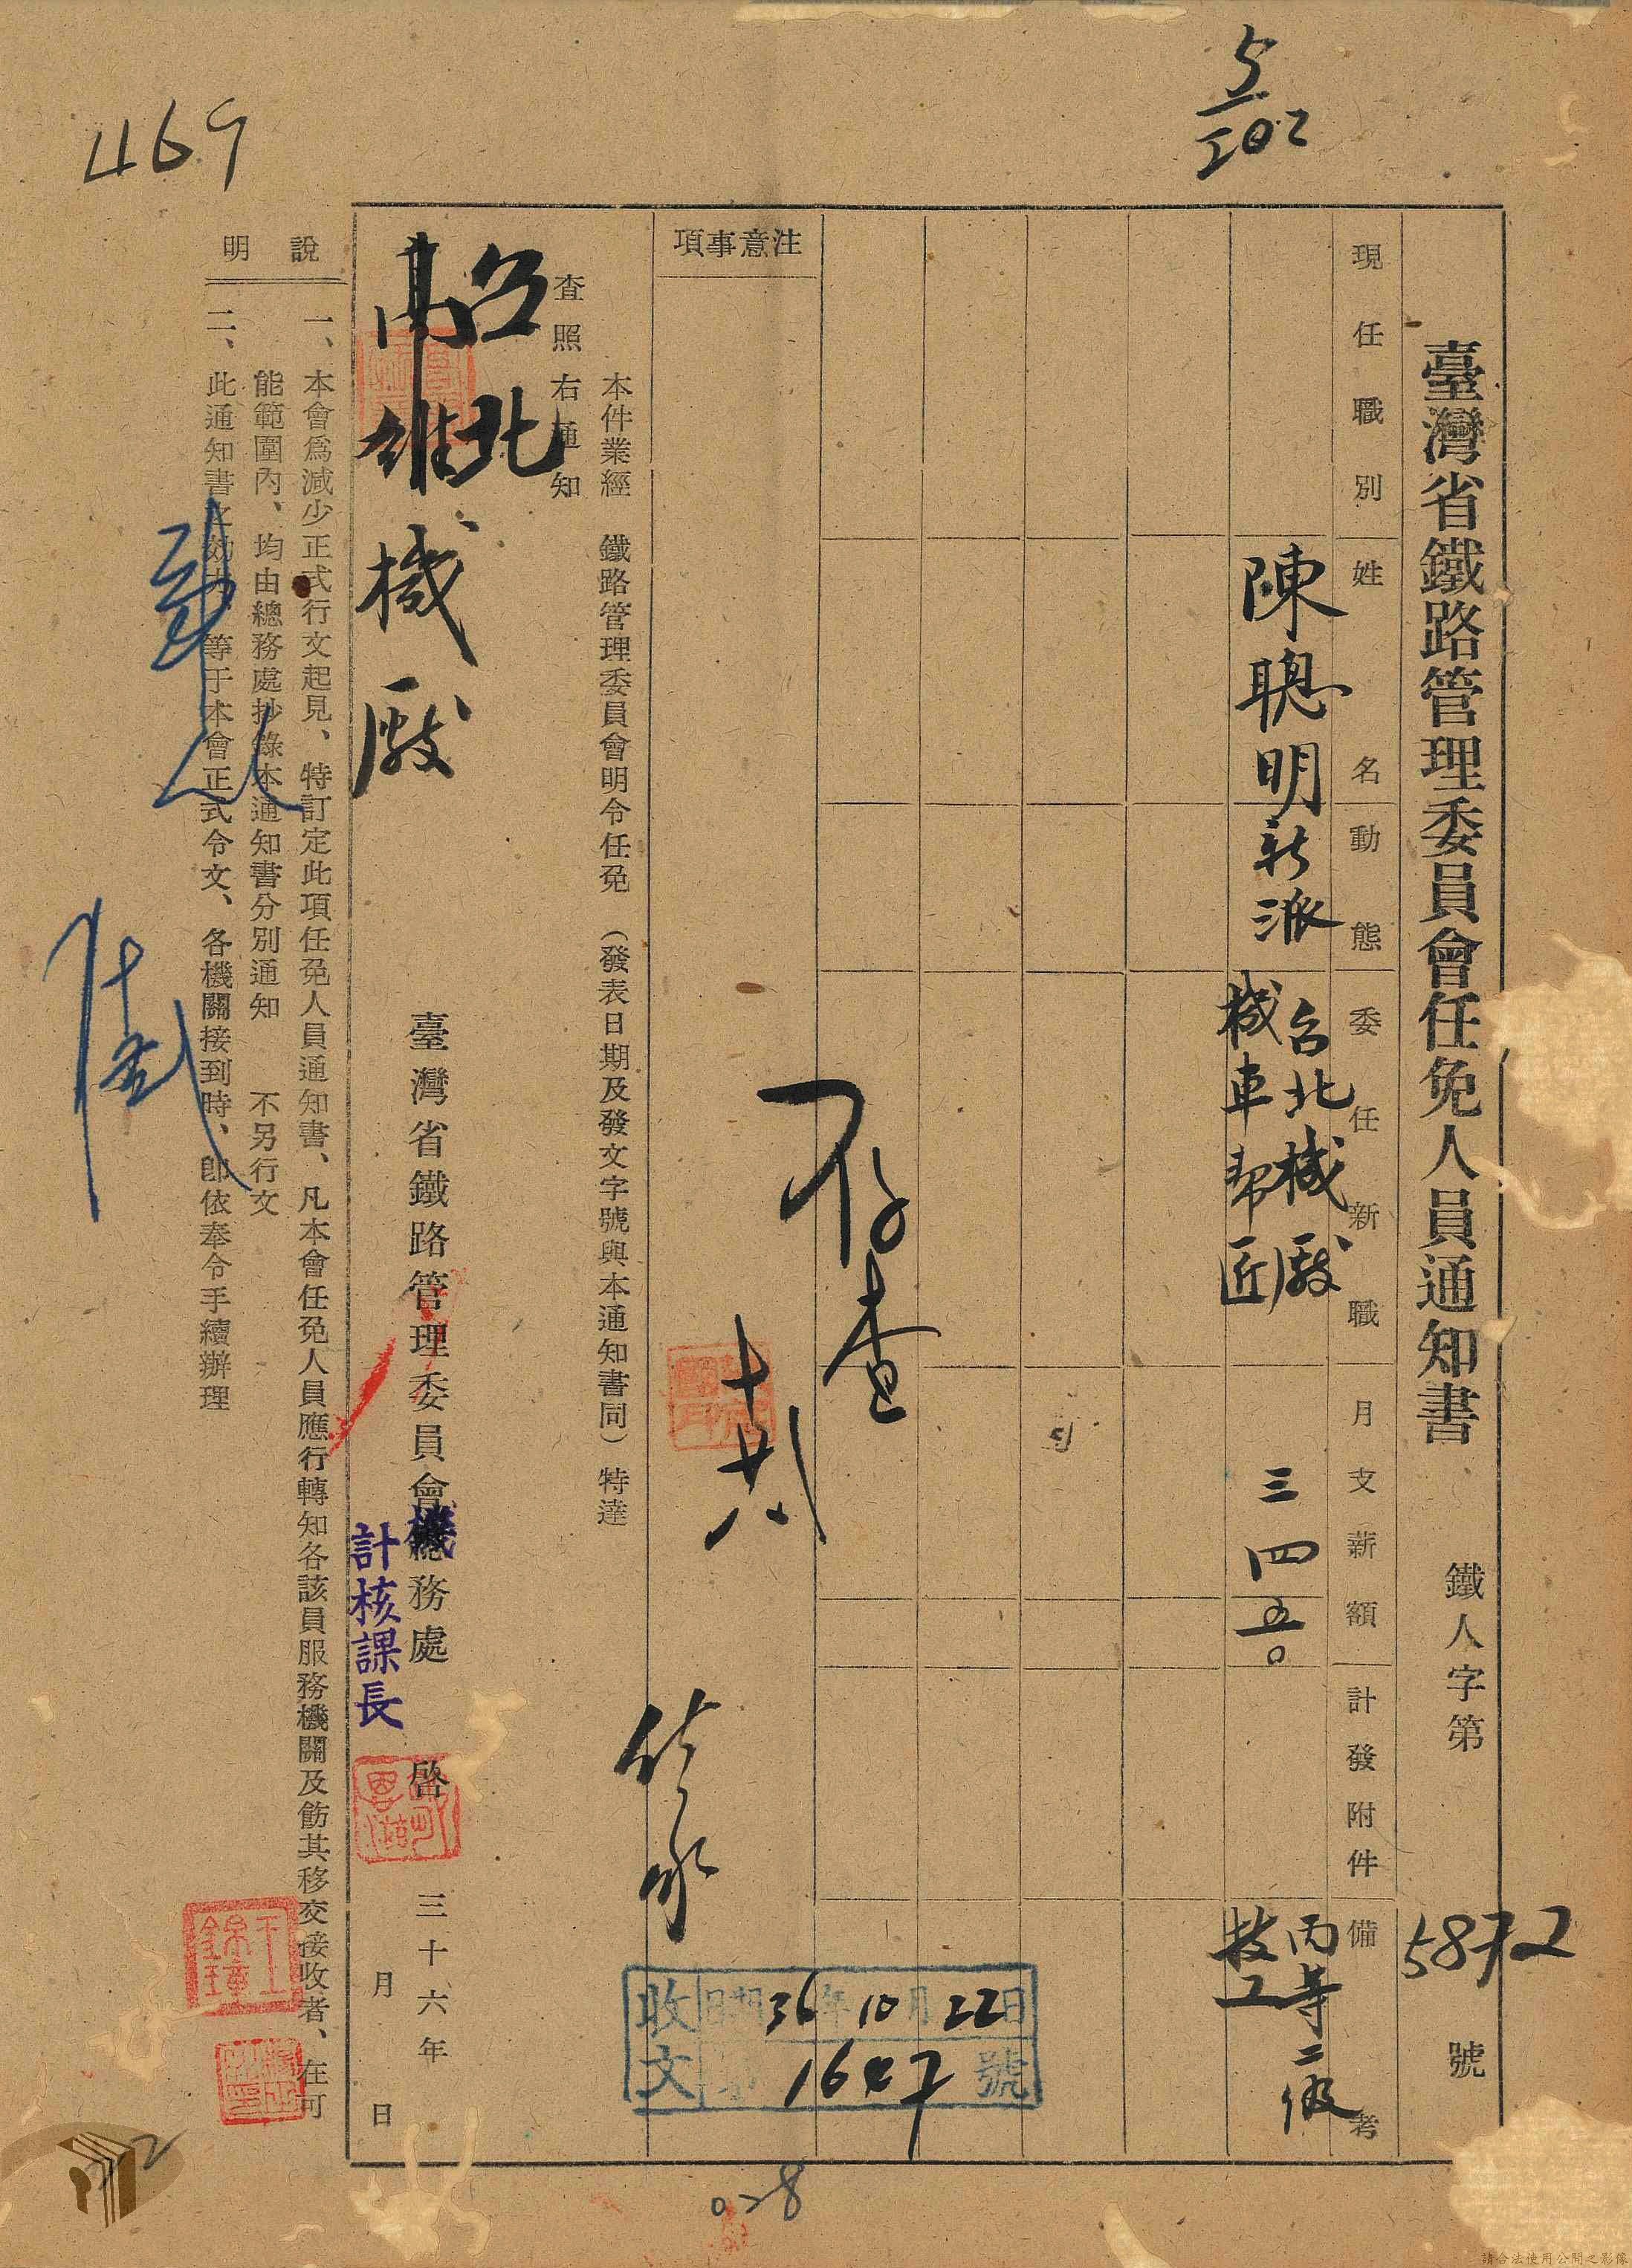 469
5
202
臺灣省鐵路管理委員會任免人員通知書
鐵人字第5872號
現任職別
姓名
動態
委任新職
月支薪額
計發附件
備考
陳聰明
新派
台北機廠
機車幫匠
三四五〇
丙等二級
技工
注意事項
存查
十廿八
本件業經 鐵路管理委員會明令任免（發表日期及發文字號與本通知書同）特達
查照 右通知
台北
高雄機廠
臺灣省鐵路管理委員會總務處 啓 三十六年 月 日
機
計核課長
收文
日期36年10月22日
1647號
說明
一、本會爲減少正式行文起見、特訂定此項任免人員通知書、凡本會任免人員應行轉知各該員服務機關及飭其移交接收者、在可
能範圍內、均由總務處抄錄本通知書分別通知 不另行文
二、此通知書之効力、等于本會正式令文、各機關接到時、卽依奉令手續辦理
王錦璋
028
請合法使用公開之影像